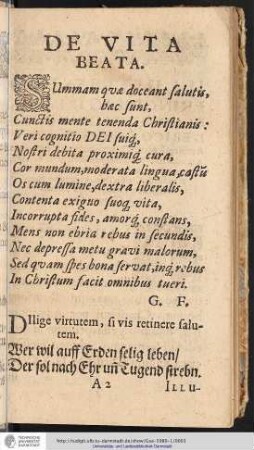 DE VITA
BEATA.
SUmmam quæ doceant salutis,
hæc sunt,
Cunctis mente tenenda Christianis:
Veri cognitio DEI suiq́,
Nostri debita proximiq́ cura,
Cor mundum, moderata lingua, castũ
Os cum lumine, dextra liberalis,
Contenta exiguo suoq́ vita,
Incorrupta fides, amorq́ constans,
Mens non ebria rebus in secundis,
Nec depressa metu gravi malorum,
Sed quam spes bona servat, inq́ rebus
In Christum facit omnibus tueri.
G. F.
DIlige virtutem, si vis retinere salu-
tem.
Wer wil auff Erden selig leben/
Der sol nach Ehr uñ Tugend strebn.
A 2
ILLU-
TECHNISCHE
UNIVERSITÄT
DARMSTADT
Universitäts- und Landesbibliothek Darmstadt